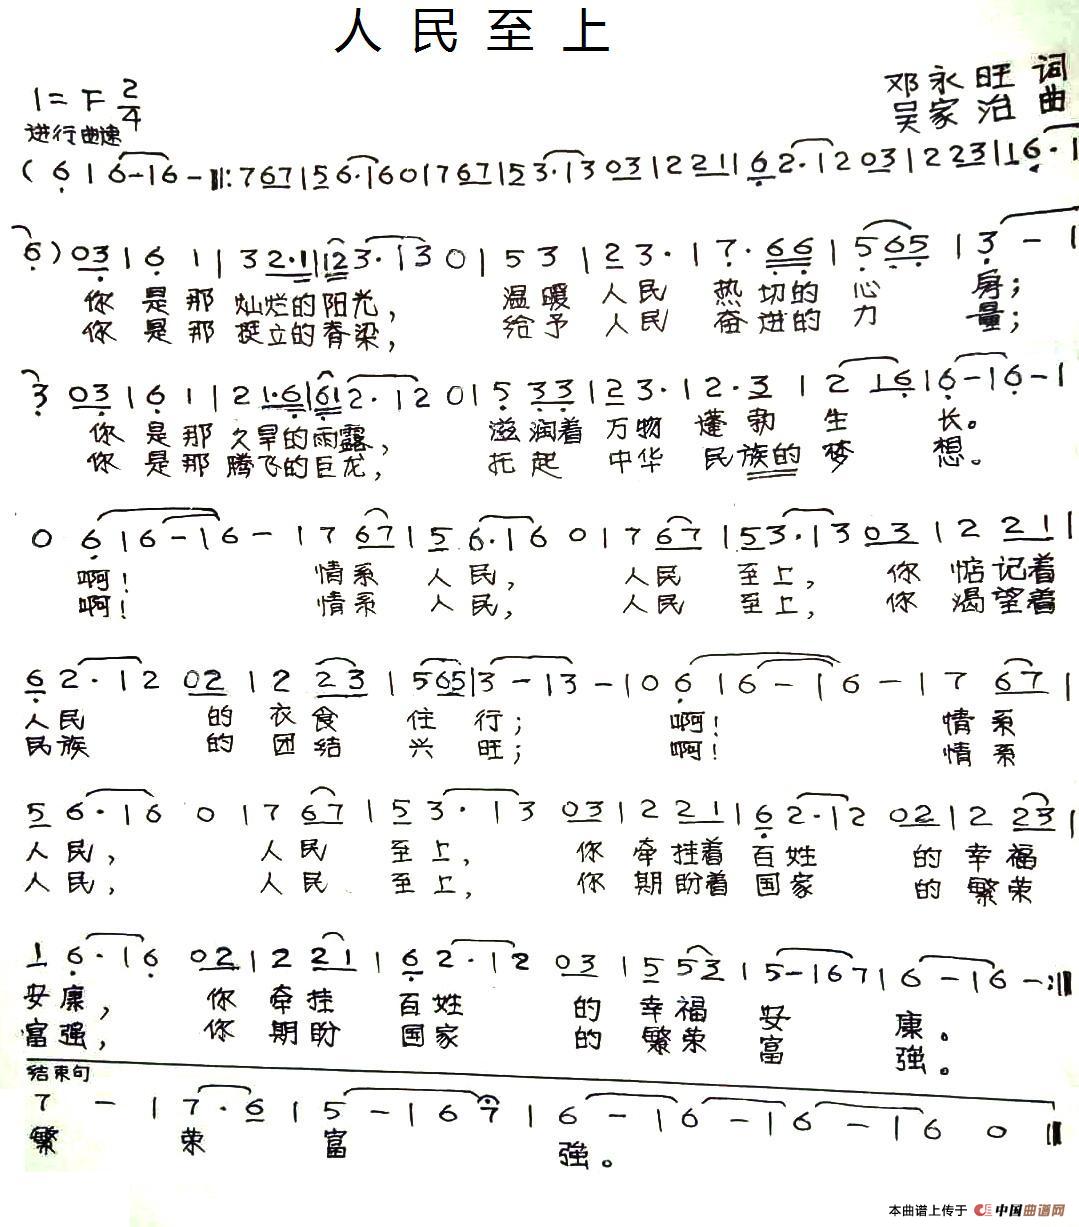 人民至上
1=F 2/4
邓永旺 词
吴家治 曲
进行曲速
(6 1 6-1 6-‖: 7 67 | 5 6·1 6 0 | 7 67 | 5 3·1 3 03 | 2 21 | 6 2·1 2 03 | 2 23 | 1 6·1
6) 03 | 6 1 | 3 2·1 | 12 3·1 3 0 | 5 3 | 23·1 7·66 | 5 65 | 3-1
你是那灿烂的阳光, 温暖人民热切的心房;
你是那挺立的脊梁, 给予人民奋进的力量;
3 03 | 6 1 | 2 1·6 | 61 2·1 2 0 | 5 33 | 23·1 2·3 | 2 16 | 6-1 6-1
你是那久旱的雨露, 滋润着万物蓬勃生长。
你是那腾飞的巨龙, 托起中华民族的梦想。
0 6 | 6-1 6- | 7 67 | 5 6·1 6 0 | 7 67 | 5 3·1 3 03 | 2 21 |
啊! 情系人民, 人民至上, 你惦记着
啊! 情系人民, 人民至上, 你渴望着
6 2·1 2 02 | 2 23 | 5 65 | 3-1 3-1 0 6 | 6-1 6-1 7 67 |
人民的衣食住行; 啊! 情系
民族的团结兴旺; 啊! 情系
5 6·1 6 0 | 7 67 | 5 3·1 3 03 | 2 21 | 6 2·1 2 02 | 2 23 |
人民, 人民至上, 你牵挂着百姓的幸福
人民, 人民至上, 你期盼着国家的繁荣
1 6·1 6 02 | 2 21 | 6 2·1 2 03 | 5 53 | 5-1 6 7 | 6-1 6-:‖
安康, 你牵挂百姓的幸福安康。
富强, 你期盼国家的繁荣富强。
结束句
7 - | 7·6 | 5-1 6 7 | 6-1 6-1 6-1 6 0 ‖
繁荣富强。
本曲谱上传于 中国曲谱网